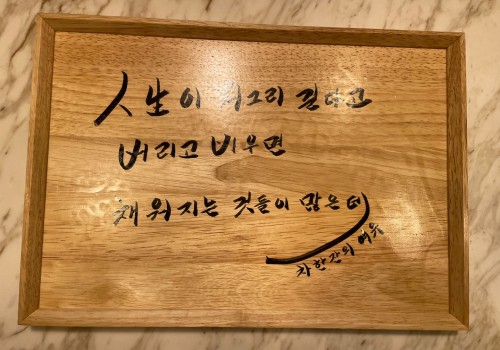 人生이 뭐그리 길다고
버리고 비우면
채워지는 것들이 많은데
차한잔의 여유